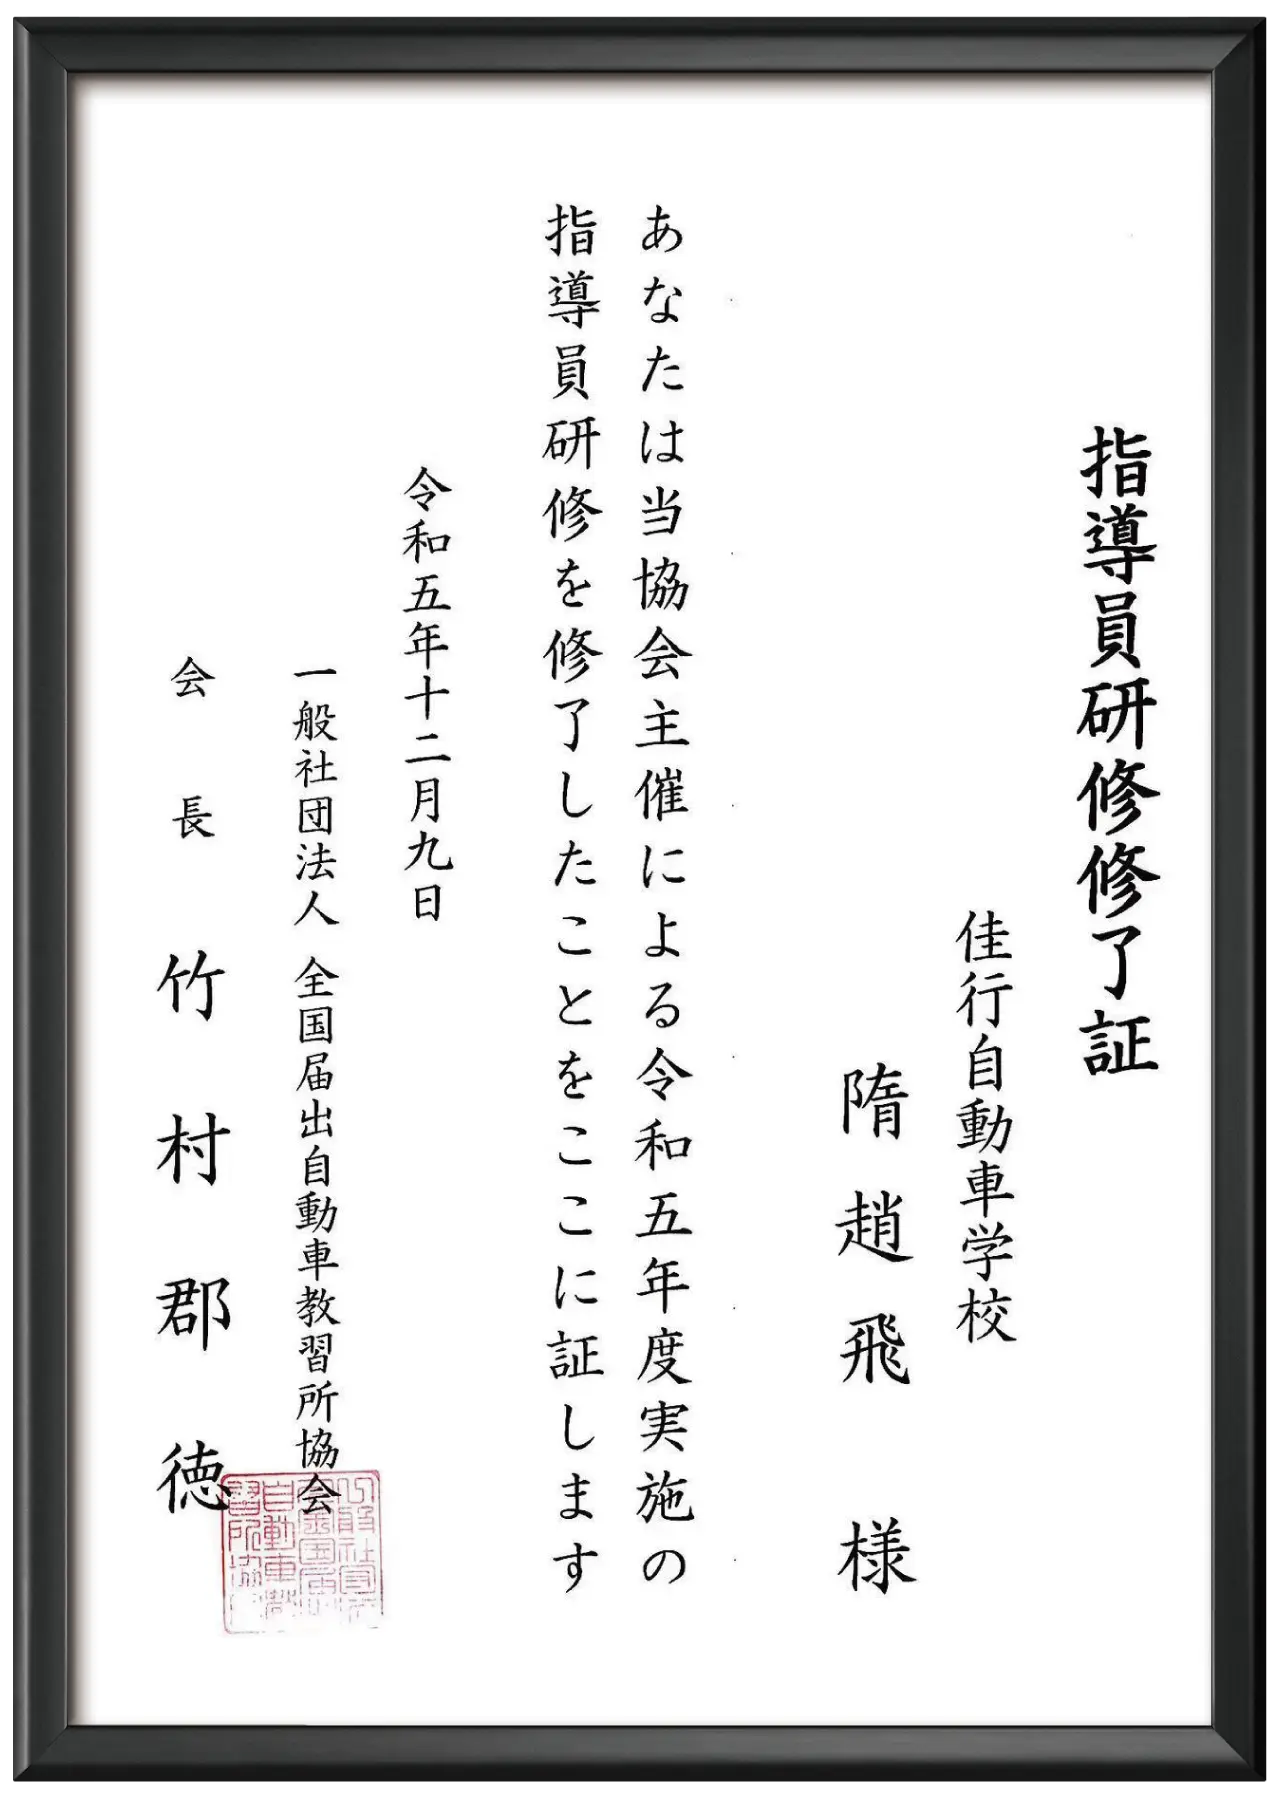 指導員研修修了証
佳行自動車学校
隋趙飛 様
あなたは当協会主催による令和五年度実施の
指導員研修を修了したことをここに証します
令和五年十二月九日
一般社団法人 全国届出自動車教習所協会
会長 竹村郡徳